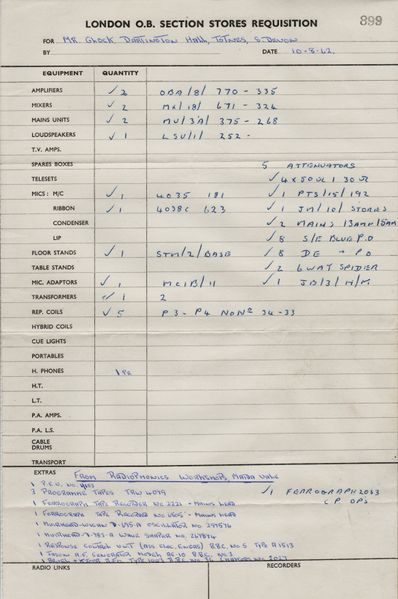 899
LONDON O.B. SECTION STORES REQUISITION
FOR MR GLOCK DARTINGTON HALL, TOTNES, S. DEVON
BY DATE 10-8-62.
EQUIPMENT QUANTITY
AMPLIFIERS ✓ 2 OBA/8/ 770 - 335
MIXERS ✓ 2 MX/18/ 671 - 324
MAINS UNITS ✓ 2 MU/3A/ 375 - 268
LOUDSPEAKERS ✓ 1 LSU/1/ 252 -
T.V. AMPS.
SPARES BOXES 5 ATTENUATORS
TELESETS ✓ 4 x 50 1 30
MICS : M/C ✓ 1 4035 181 ✓ 1 PTS/15/192
RIBBON ✓ 1 4038C 623 ✓ 1 JM/10/STORNS
CONDENSER ✓ 2 MAINS 13AMP/5AMP
LIP ✓ 8 S/E BLUE P.O
FLOOR STANDS ✓ 1 STM/2/BASE ✓ 8 DE " P.O
TABLE STANDS ✓ 2 6 WAY SPIDER
MIC. ADAPTORS ✓ 1 MC1B/11 ✓ 1 JB/3/
TRANSFORMERS ✓ 1 2
REP. COILS ✓ 5 P3 - P4 NONE 34-33
HYBRID COILS
CUE LIGHTS
PORTABLES
H. PHONES 1 PR
H.T.
L.T.
P.A. AMPS.
P.A. L.S.
CABLE
DRUMS
TRANSPORT
EXTRAS FROM RADIOPHONICS WORKSHOP, MAIDA VALE
1 P.E.U. NO.
3 PROGRAMME TAPES TRW 4079 ✓ 1 FERROGRAPH 2063
1 FERROGRAPH TAPE RECORDER NO 2221 - MAINS LEAD C.P. OPS
1 FERROGRAPH TAPE RECORDER NO - MAINS LEAD
1 MUIRHEAD-WIGAN D-195-A OSCILLATOR NO 247576
1 MUIRHEAD D-783-A WAVE SHAPER NO 267874
1 RESPONSE CONTROL UNIT BBC. NO 5 TYPE A1513
1 JASON A.F. GENERATOR MODEL AG-10 BBC. NO 2
1
RADIO LINKS RECORDERS